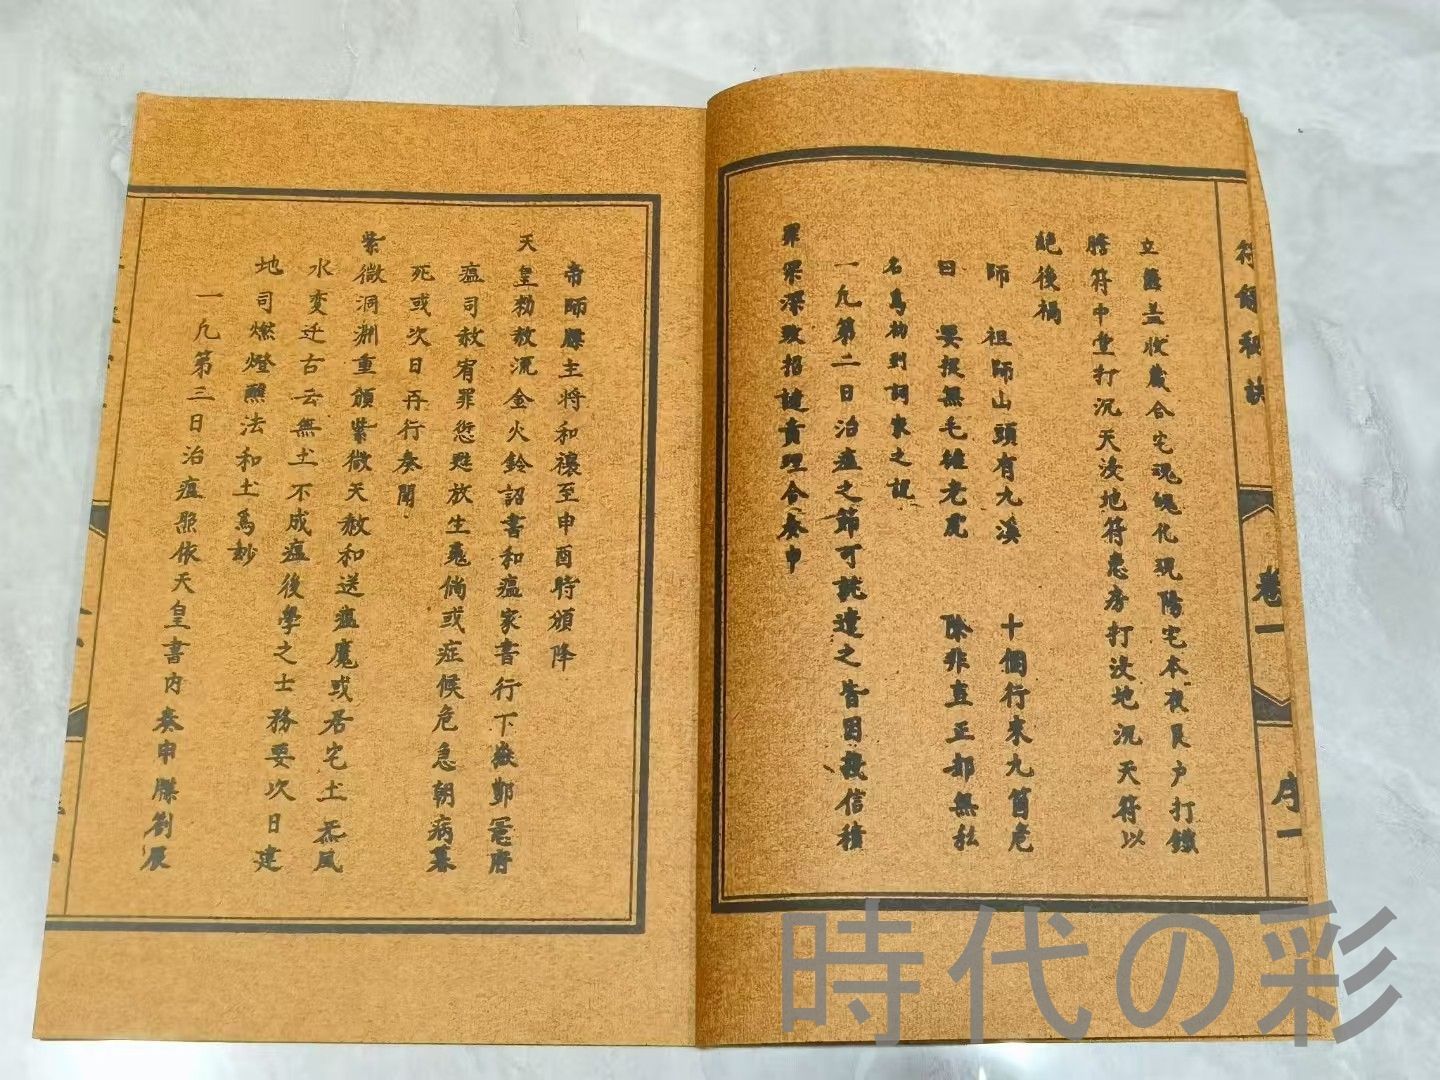 符師秘訣
卷一
序一
立蓋收藏合宅魂魄化現陽宅本夜艮户打鐵
符中堂打沉天没地符患房打没地沉天符以
絕後禍
師祖師山頭有九溪 十個行來九箇危
曰 要提無毛雄老虎 除非直正却無私
名爲初到詞家之說
一凡第二日治瘟之節可就遣之皆因信積
罪深致招譴責理合奏申
帝師牒主將和禳至申酉時頒降
天皇勅赦流金火鈴詔書和瘟家書行下嶽酆冤府
瘟司赦宥罪愆甦放生魂倘或症候危急朝病暮
死或次日再行奏聞
紫微洞淵重頒紫微天赦和送瘟魔或居宅土炁風
水变迁古云無土不成瘟後學之士務要次日建
地司燃燈醮法和土爲妙
一凡第三日治瘟照依天皇書内奏申牒劄辰
時代の彩